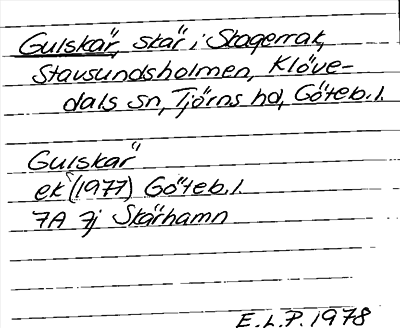 Gulskär, skär i Skagerrak,
Stavsundsholmen, Klöve-
dals sn, Tjörns hd, Göteb. l.
Gulskär
ek (1977) Göteb. l.
7A 7j Skärhamn
E.L.P. 1978